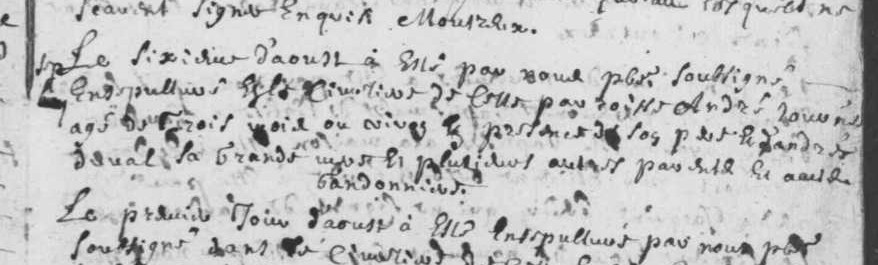 scavent signer Enquis Moutreux.
sp Le sixieme d'aoust à Esté par nous pbre soubsigné
Ensepulturé Es le Cimetiere de Cette parroisse André
agé de trois mois ou environ En presence de son pere Et d'andré
deval sa Grande mere Et plusieurs autres parents Et amis
Le premier Jour d'aoust à Esté Ensepulturé par nous pbre
soubsigné dans le Cimetiere de